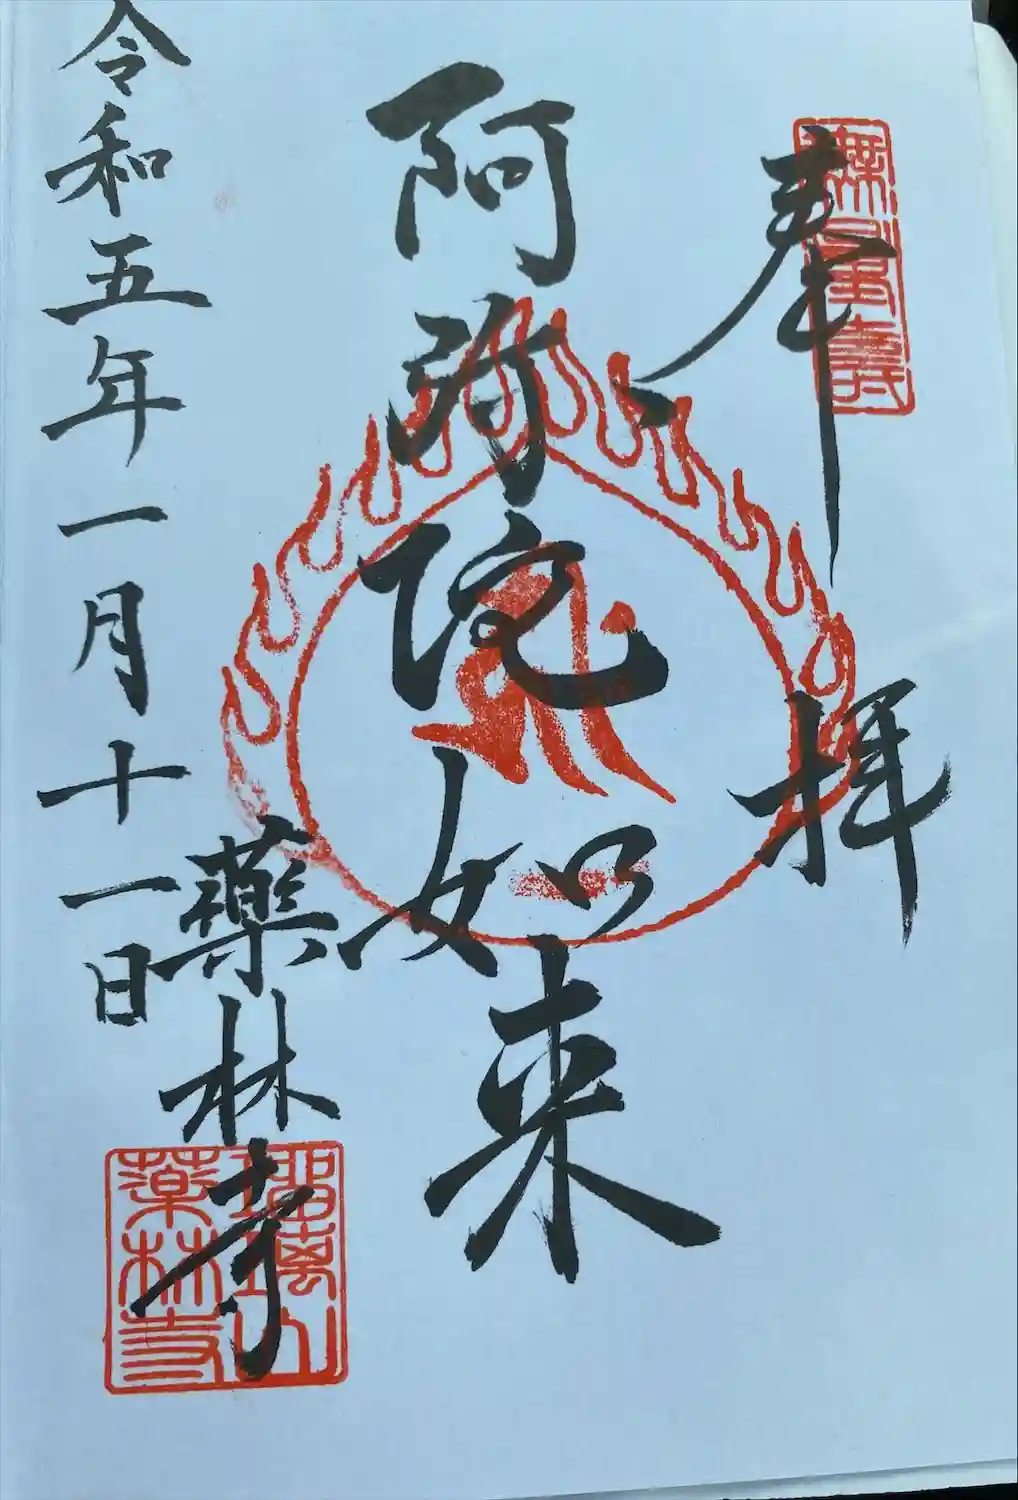 奉拝
無量壽
阿弥陀如来
薬林寺
瑠璃山
薬林寺
令和五年一月十一日